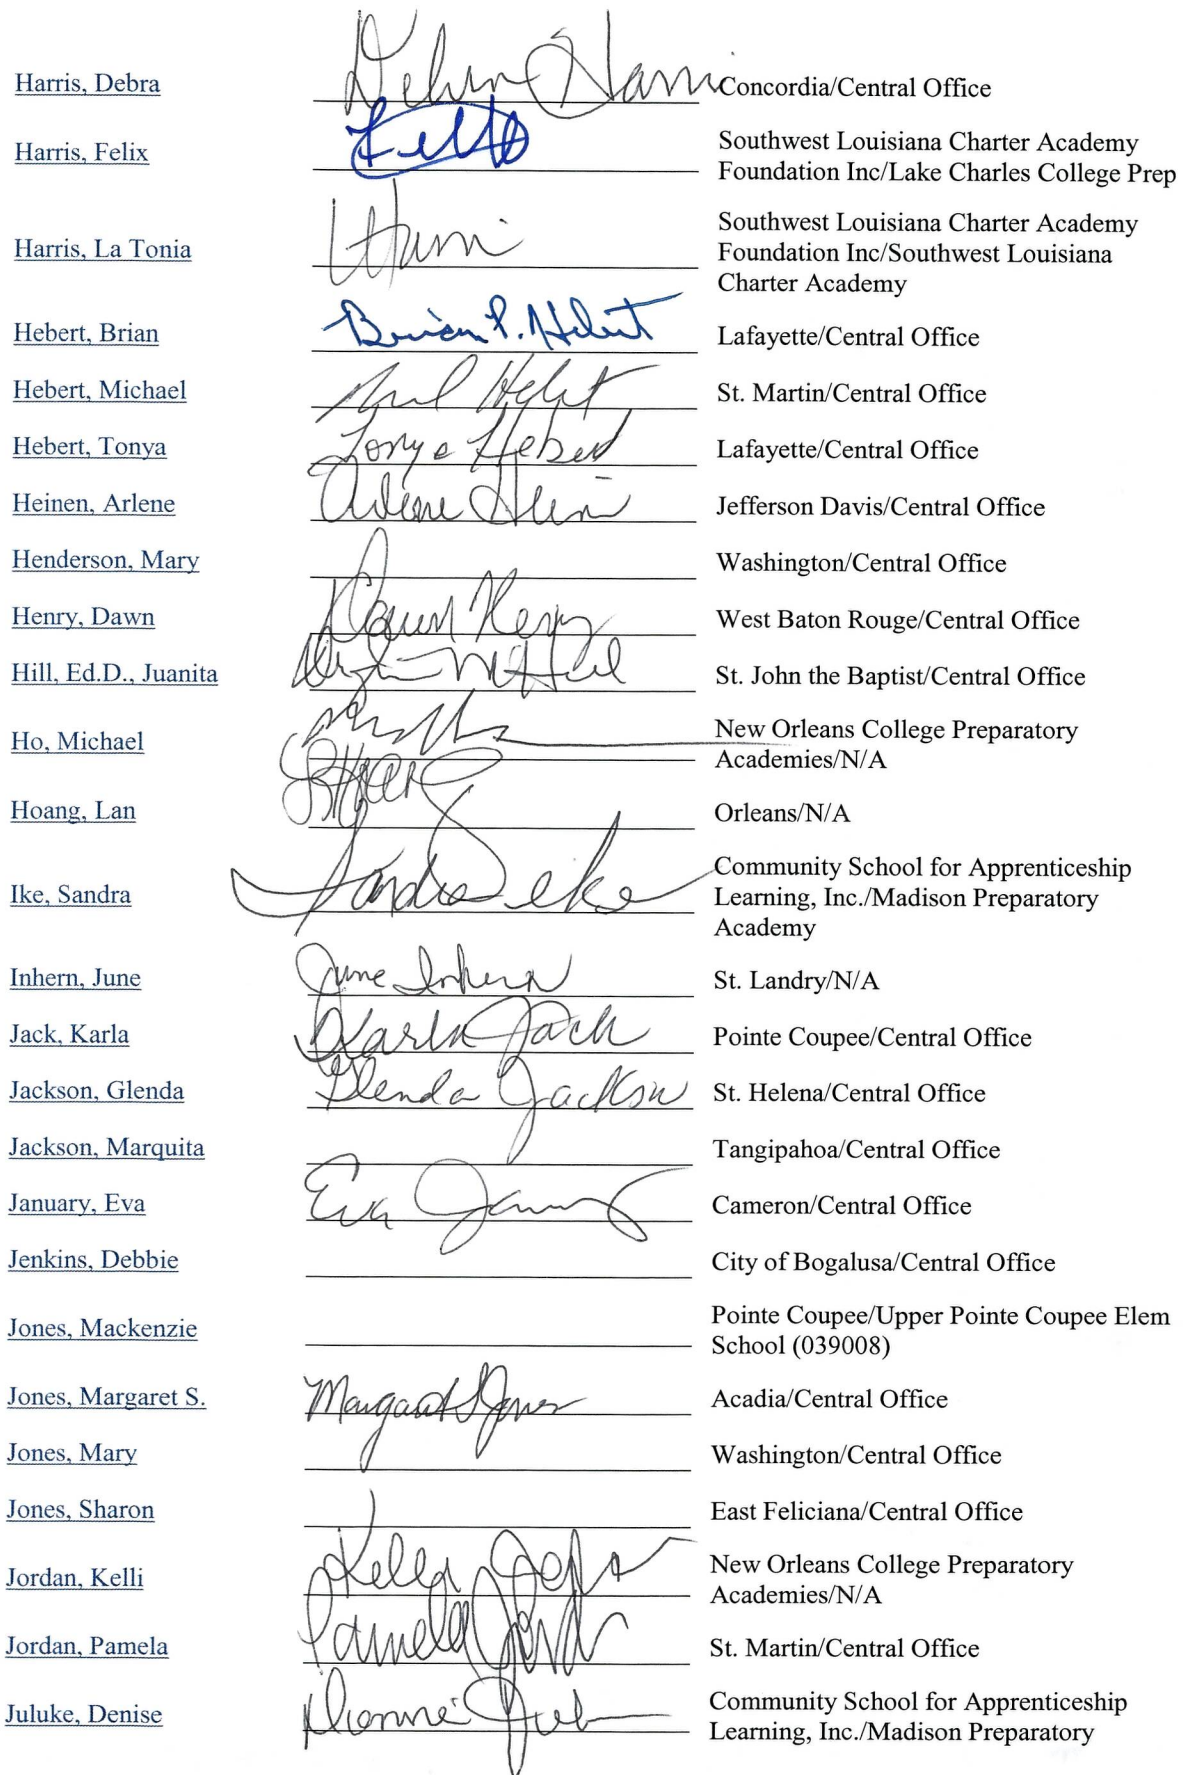 Harris, Debra Debra Harris Concordia/Central Office
Harris, Felix Southwest Louisiana Charter Academy
Foundation Inc/Lake Charles College Prep
Southwest Louisiana Charter Academy
Harris, La Tonia Harris Foundation Inc/Southwest Louisiana
Charter Academy
Hebert, Brian Brian P. Hebert Lafayette/Central Office
Hebert, Michael Hebert St. Martin/Central Office
Hebert, Tonya Tonya Hebert Lafayette/Central Office
Heinen, Arlene Arlene Jefferson Davis/Central Office
Henderson, Mary Washington/Central Office
Henry, Dawn Dawn Henry West Baton Rouge/Central Office
Hill, Ed.D., Juanita Hill St. John the Baptist/Central Office
Ho, Michael New Orleans College Preparatory
Academies/N/A
Hoang, Lan Orleans/N/A
Community School for Apprenticeship
Ike, Sandra Sandra Ike Learning, Inc./Madison Preparatory
Academy
Inhern, June June Inhern St. Landry/N/A
Jack, Karla Karla Jack Pointe Coupee/Central Office
Jackson, Glenda Glenda Jackson St. Helena/Central Office
Jackson, Marquita Tangipahoa/Central Office
January, Eva Eva January Cameron/Central Office
Jenkins, Debbie City of Bogalusa/Central Office
Jones, Mackenzie Pointe Coupee/Upper Pointe Coupee Elem
School (039008)
Jones, Margaret S. Margaret S Jones Acadia/Central Office
Jones, Mary Washington/Central Office
Jones, Sharon East Feliciana/Central Office
Jordan, Kelli Kelli New Orleans College Preparatory
Academies/N/A
Jordan, Pamela Pamela Jordan St. Martin/Central Office
Juluke, Denise Community School for Apprenticeship
Learning, Inc./Madison Preparatory